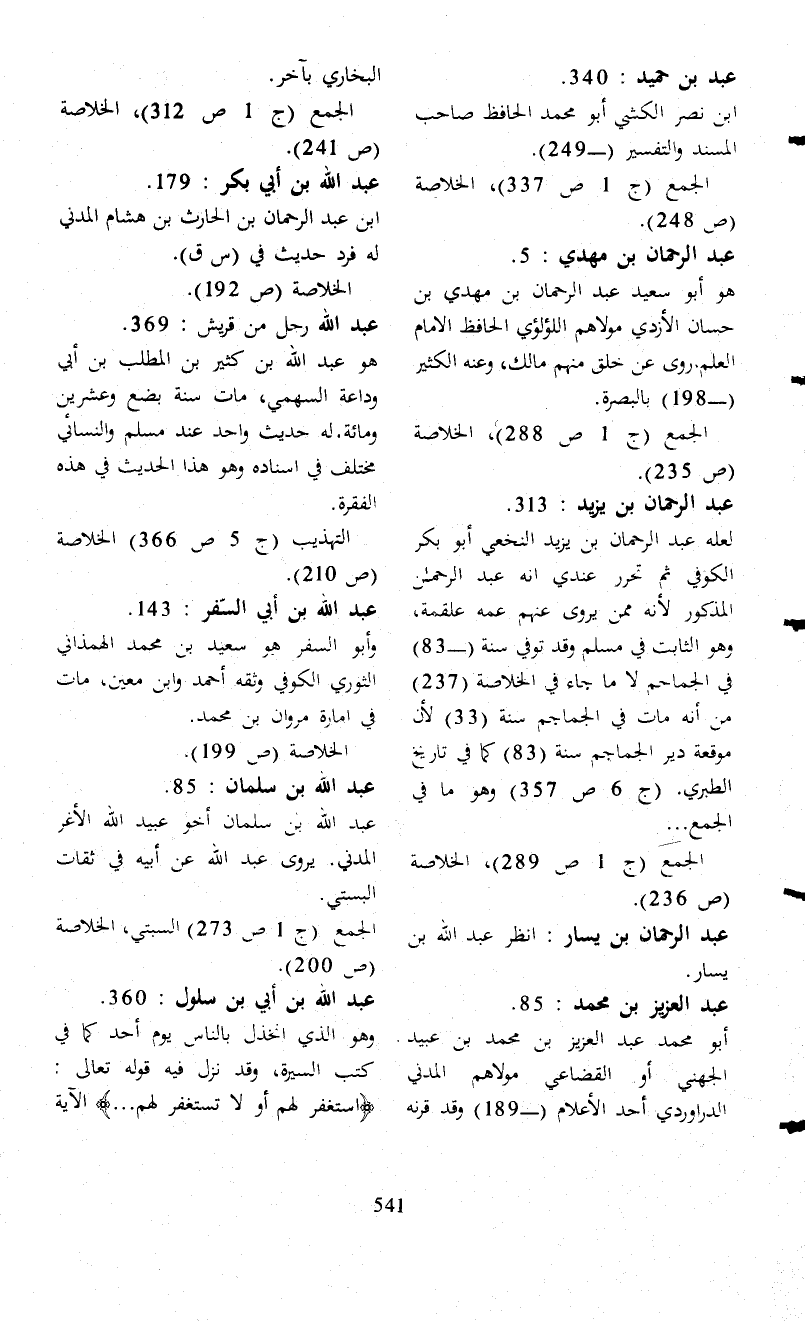 عبد بن حميد : 340.
ابن نصر الكشي أبو محمد الحافظ صاحب
المسند والتفسير (ــ249).
الجمع (ج 1 ص 337)، الخلاصة
(ص 248).
عبد الرحمان بن مهدي : 5.
هو أبو سعيد عبد الرحمان بن مهدي بن
حسان الأزدي مولاهم اللؤلؤي الحافظ الامام
العلم.روى عن خلق منهم مالك، وعنه الكثير
(ــ198) بالبصرة.
الجمع (ج 1 ص 288)، الخلاصة
(ص 235).
عبد الرحمان بن يزيد : 313.
لعله عبد الرحمان بن يزيد النخعي أبو بكر
الكوفي ثم تحرر عندي انه عبد الرحمن
المذكور لأنه ممن يروى عنهم عمه علقمة،
وهو الثابت في مسلم وقد توفي سنة (ــ83)
في الجماحم لا ما جاء في الخلاصة (237)
من أنه مات في الجماجم سنة (33) لأن
موقعة دير الجماجم سنة (83) كما في تاريخ
الطبري. (ج 6 ص 357) وهو ما في
الجمع...
الجمع (ج 1 ص 289)، الخلاصة
(ص 236).
عبد الرحمان بن يسار : انظر عبد الله بن
يسار.
عبد العزيز بن محمد : 85.
أبو محمد عبد العزيز بن محمد بن عبيد
الجهني أو القضاعي مولاهم المدني
الدراوردي أحد الأعلام (ــ189) وقد قرنه
البخاري بآخر.
الجمع (ج 1 ص 312)، الخلاصة
(ص 241).
عبد الله بن أبي بكر : 179.
ابن عبد الرحمان بن الحارث بن هشام المدني
له فرد حديث في (س ق).
الخلاصة (ص 192).
عبد الله رجل من قريش : 369.
هو عبد الله بن كثير بن المطلب بن أبي
وداعة السهمي، مات سنة بضع وعشرين
ومائة.له حديث واحد عند مسلم والنسائي
مختلف في اسناده وهو هذا الحديث في هذه
الفقرة.
التهذيب (ج 5 ص 366) الخلاصة
(ص 210).
عبد الله بن أبي السّفر : 143.
وأبو السفر هو سعيد بن محمد الهمذاني
الثوري الكوفي وثقه أحمد وابن معين، مات
في امارة مروان بن محمد.
الخلاصة (ص 199).
عبد الله بن سلمان : 85.
عبد الله بن سلمان أخو عبيد الله الأغر
المدني. يروى عبد الله عن أبيه في ثقات
البستي.
الجمع (ج 1 ص 273) السبتي، الخلاصة
(ص 200).
عبد الله بن أبي بن سلول : 360.
وهو الذي انخذل بالناس يوم أحد كما في
كتب السيرة، وقد نزل فيه قوله تعالى :
﴿استغفر لهم أو لا تستغفر لهم...﴾ الآية
541